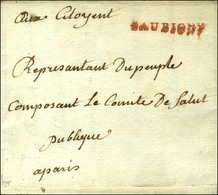 Aux Citoyent
D'AUBIGNY
Represantant Du peuple
Composant Le Comite De Salut
publique
a paris